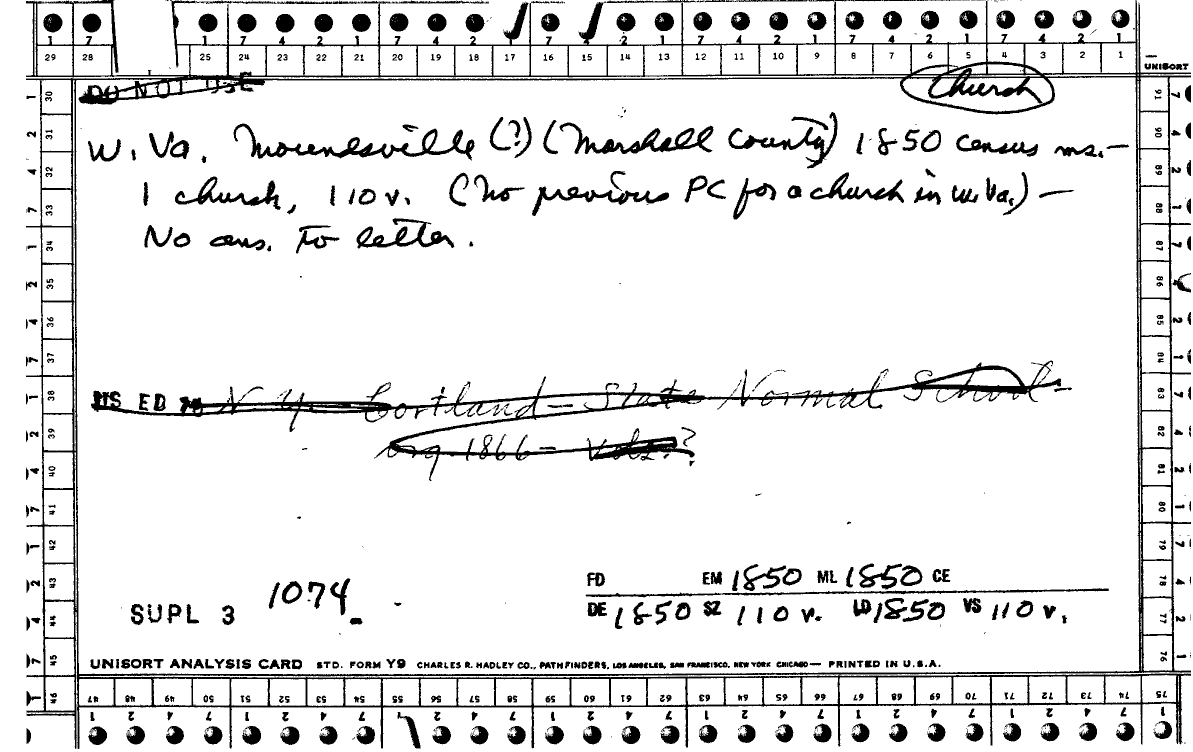 1 7 7 4 2 1 7 4 2 1 7 4 2 1 7 4 2 1 7 4 2 1 7 4 2 1
29 28 25 24 23 22 21 20 19 18 17 16 15 14 13 12 11 10 9 8 7 6 5 4 3 2 1
UNISORT
DO NOT USE
Church
W. Va. Moundsville (?) (Marshall County) 1850 census ms.—
1 church, 110 v. (No previous PC for a church in W. Va.) —
No ans. to letter.
HS ED N.Y. — Cortland — State Normal School —
org. 1866 — Vols.?
SUPL 3 1074
FD EM 1850 ML 1850 CE
DE 1850 SZ 110 v. LD 1850 VS 110 v.
UNISORT ANALYSIS CARD STD. FORM Y9 CHARLES R. HADLEY CO., PATHFINDERS, LOS ANGELES, SAN FRANCISCO, NEW YORK CHICAGO — PRINTED IN U.S.A.
47 48 49 50 51 52 53 54 55 56 57 58 59 60 61 62 63 64 65 66 67 68 69 70 71 72 73 74 75